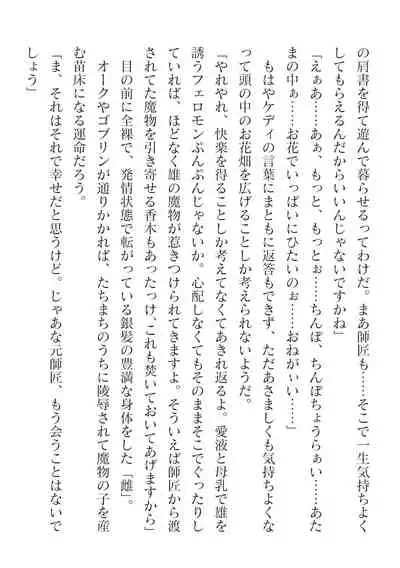 の肩書を得て遊んで暮らせるってわけだ。まあ師匠も……そこで一生気持ちよく
してもらえるんだからいいんじゃないですかね」
「えぁあ……あぁ、もっと、もっとぉ……ちんぽ、ちんぽちょうらぁい……あた
まの中ぁ……お花でいっぱいにひたいのぉ……おねがぃい……」
もはやケディの言葉にまともに返答もできず、ただあさましくも気持ちよくな
って頭の中のお花畑を広げることしか考えられないようだ。
「やれやれ、快楽を得ることしか考えてなくてあきれ返るよ。愛液と母乳で雄を
誘うフェロモンぷんぷんじゃないか。心配しなくてもそのままそこでぐったりし
ていれば、ほどなく雄の魔物が惹きつけられてきますよ。そういえば師匠から渡
されてた魔物を引き寄せる香木もあったっけ、これも焚いておいてあげますから」
目の前に全裸で、発情状態で転がっている銀髪の豊満な身体をした「雌」。
オークやゴブリンが通りかかれば、たちまちのうちに陵辱されて魔物の子を産
む苗床になる運命だろう。
「ま、それはそれで幸せだと思うけど。じゃあな元師匠、もう会うことはないで
しょう」